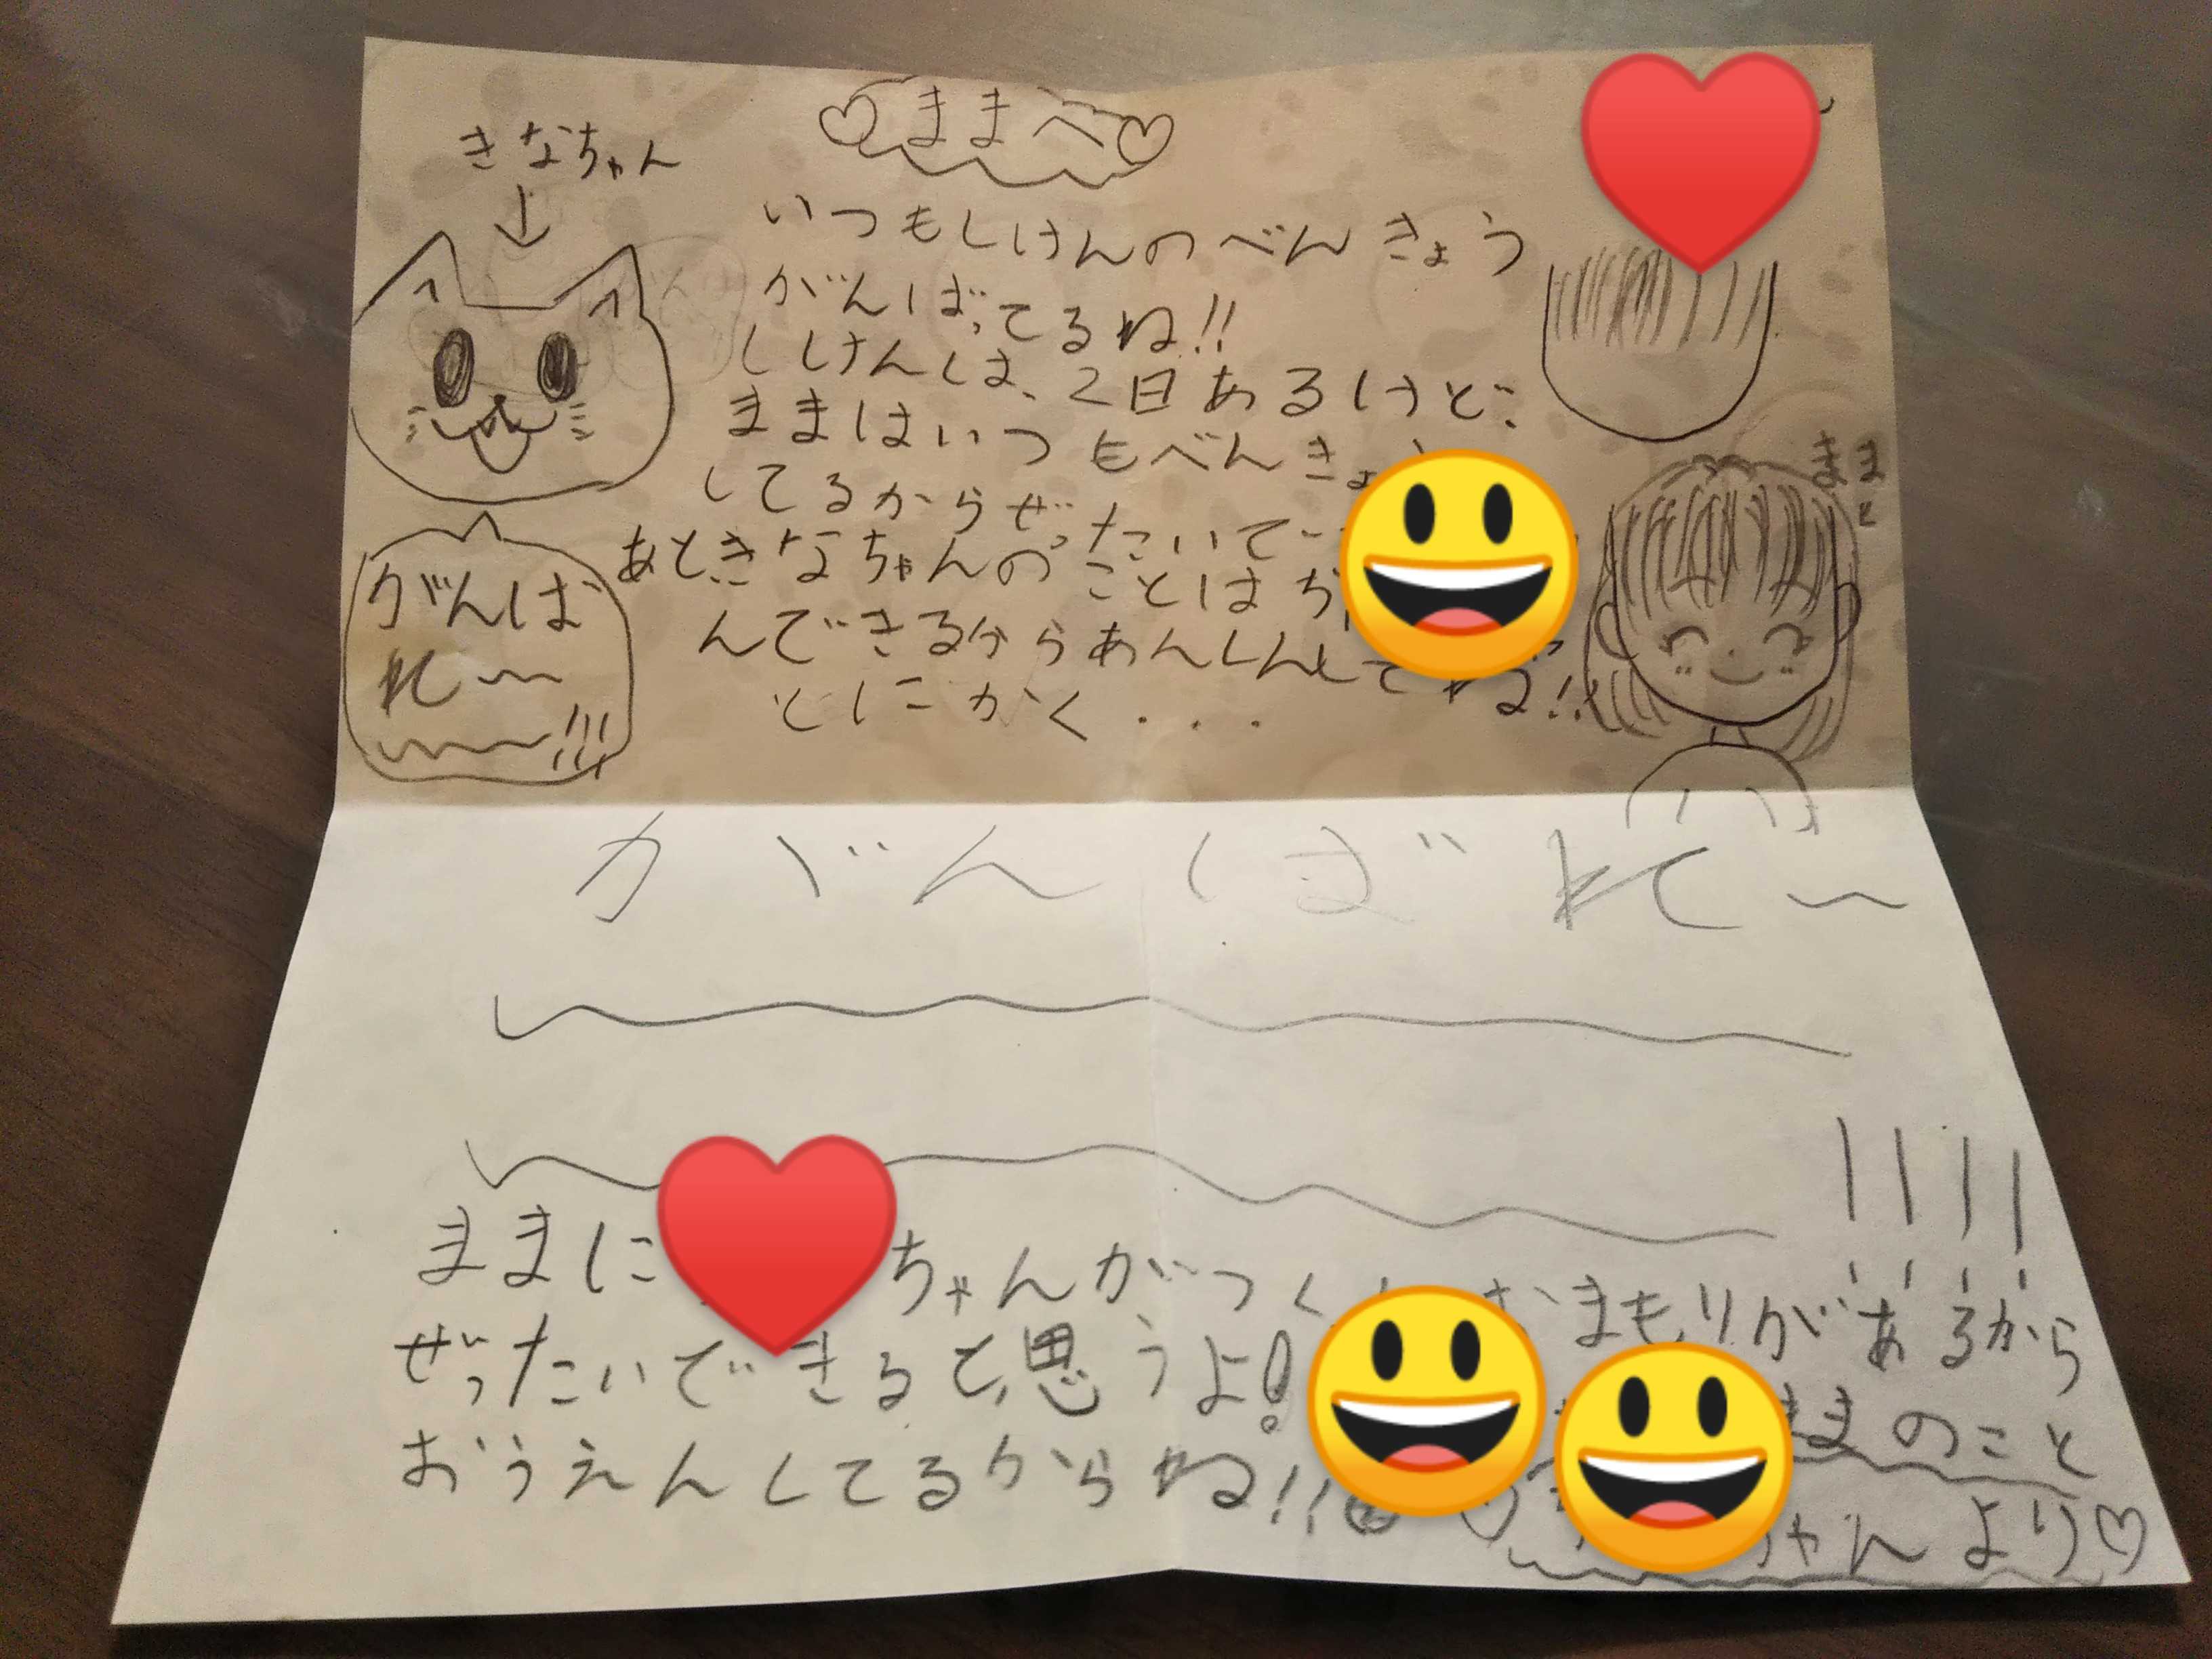 ♡ままへ♡
きなちゃん
↓
いつもしけんのべんきょう
がんばってるね!!
しけんは、2日あるけど、
ままはいつもべんきょ
してるからぜったいで
あときなちゃんのことは
んできるからあんしんしてね!!
とにかく・・・
まま
がんば
れ〜
〜!!!
がんばれ〜
〜〜!!!!
ままに ちゃんがつく おまもりがあるから
ぜったいできると思うよ! ままのこと
おうえんしてるからね!!
ちゃんより♡